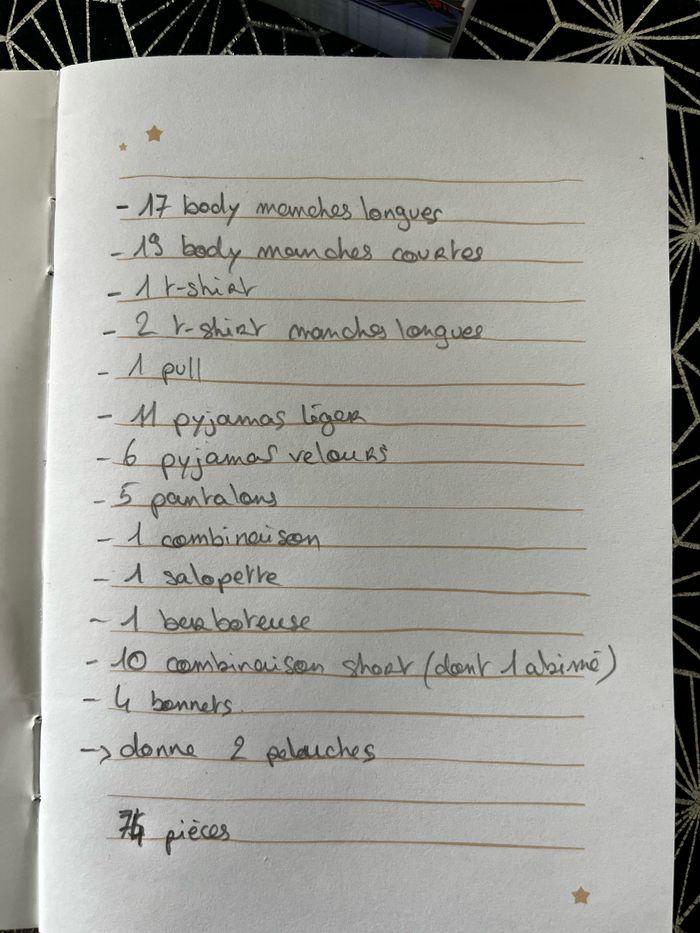 - 17 body manches longues
- 19 body manches courtes
- 1 t-shirt
- 2 t-shirt manches longues
- 1 pull
- 11 pyjamas léger
- 6 pyjamas velours
- 5 pantalons
- 1 combinaison
- 1 salopette
- 1 barboteuse
- 10 combinaison short (dont 1 abimé)
- 4 bonnets.
-> donne 2 peluches
pièces